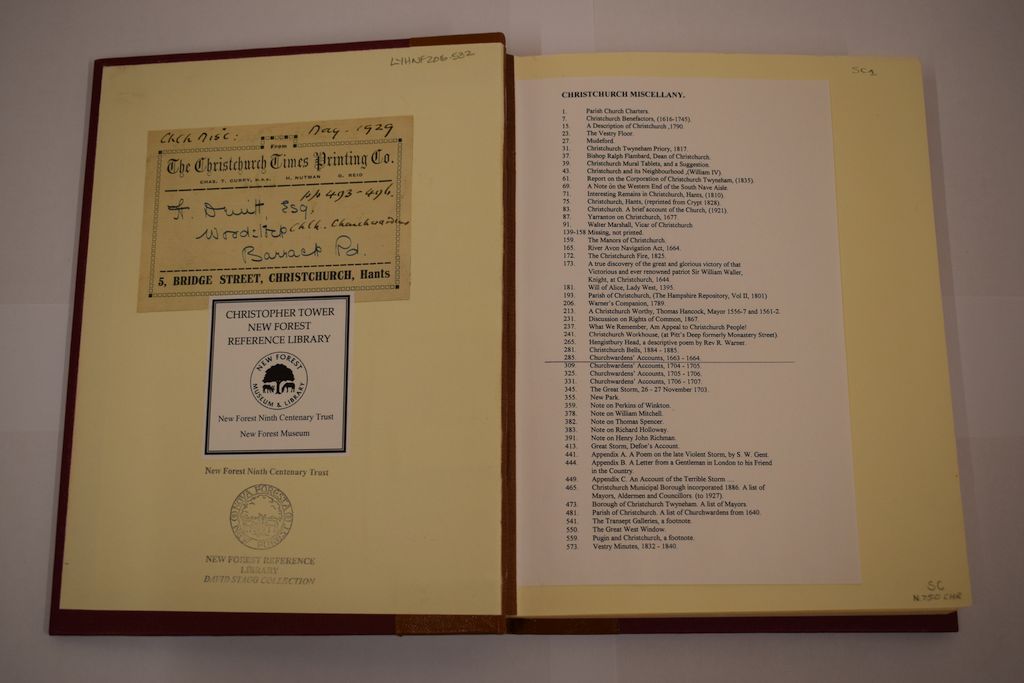 LYHNF206.532
Chch Misc: May. 1929
From
The Christchurch Times Printing Co.
H. NUTMAN G. REID
pp 493-496
Druitt, Esq,
Chch. Churchwardens
Barrack Rd.
5, BRIDGE STREET, CHRISTCHURCH, Hants
CHRISTOPHER TOWER
NEW FOREST
REFERENCE LIBRARY
NEW FOREST
MUSEUM & LIBRARY
New Forest Ninth Centenary Trust
New Forest Museum
New Forest Ninth Centenary Trust
NEW FOREST REFERENCE
LIBRARY
DAVID STAGG COLLECTION
SC1
CHRISTCHURCH MISCELLANY.
1. Parish Church Charters.
7. Christchurch Benefactors, (1616-1745).
15. A Description of Christchurch ,1790.
23. The Vestry Floor.
27. Mudeford.
31. Christchurch Twyneham Priory, 1817.
37. Bishop Ralph Flambard, Dean of Christchurch.
39. Christchurch Mural Tablets, and a Suggestion.
43. Christchurch and its Neighbourhood ,(William IV).
61. Report on the Corporation of Christchurch Twyneham, (1835).
69. A Note on the Western End of the South Nave Aisle.
71. Interesting Remains in Christchurch, Hants, (1810).
75. Christchurch, Hants, (reprinted from Crypt 1828).
83. Christchurch. A brief account of the Church, (1921).
87. Yarranton on Christchurch, 1677.
91. Walter Marshall, Vicar of Christchurch
139-158 Missing, not printed.
159. The Manors of Christchurch.
165. River Avon Navigation Act, 1664.
172. The Christchurch Fire, 1825.
173. A true discovery of the great and glorious victory of that
Victorious and ever renowned patriot Sir William Waller,
Knight, at Christchurch, 1644.
181. Will of Alice, Lady West, 1395.
193. Parish of Christchurch, (The Hampshire Repository, Vol II, 1801)
206. Warner's Companion, 1789.
213. A Christchurch Worthy, Thomas Hancock, Mayor 1556-7 and 1561-2.
231. Discussion on Rights of Common, 1867.
237. What We Remember, Am Appeal to Christchurch People!
241. Christchurch Workhouse, (at Pitt's Deep formerly Monastery Street).
265. Hengistbury Head, a descriptive poem by Rev R. Warner.
281. Christchurch Bells, 1884 - 1885.
285. Churchwardens' Accounts, 1663 - 1664.
309. Churchwardens' Accounts, 1704 - 1705.
325. Churchwardens' Accounts, 1705 - 1706.
331. Churchwardens' Accounts, 1706 - 1707.
345. The Great Storm, 26 - 27 November 1703.
355. New Park.
359. Note on Perkins of Winkton.
378. Note on William Mitchell.
382. Note on Thomas Spencer.
383. Note on Richard Holloway.
391. Note on Henry John Richman.
413. Great Storm, Defoe's Account.
441. Appendix A. A Poem on the late Violent Storm, by S. W. Gent.
444. Appendix B. A Letter from a Gentleman in London to his Friend
in the Country.
449. Appendix C. An Account of the Terrible Storm ....
465. Christchurch Municipal Borough incorporated 1886. A list of
Mayors, Aldermen and Councillors. (to 1927).
473. Borough of Christchurch Twyneham. A list of Mayors.
481. Parish of Christchurch. A list of Churchwardens from 1640.
541. The Transept Galleries, a footnote.
550. The Great West Window.
559. Pugin and Christchurch, a footnote.
573. Vestry Minutes, 1832 - 1840.
SC
N.750 CHR